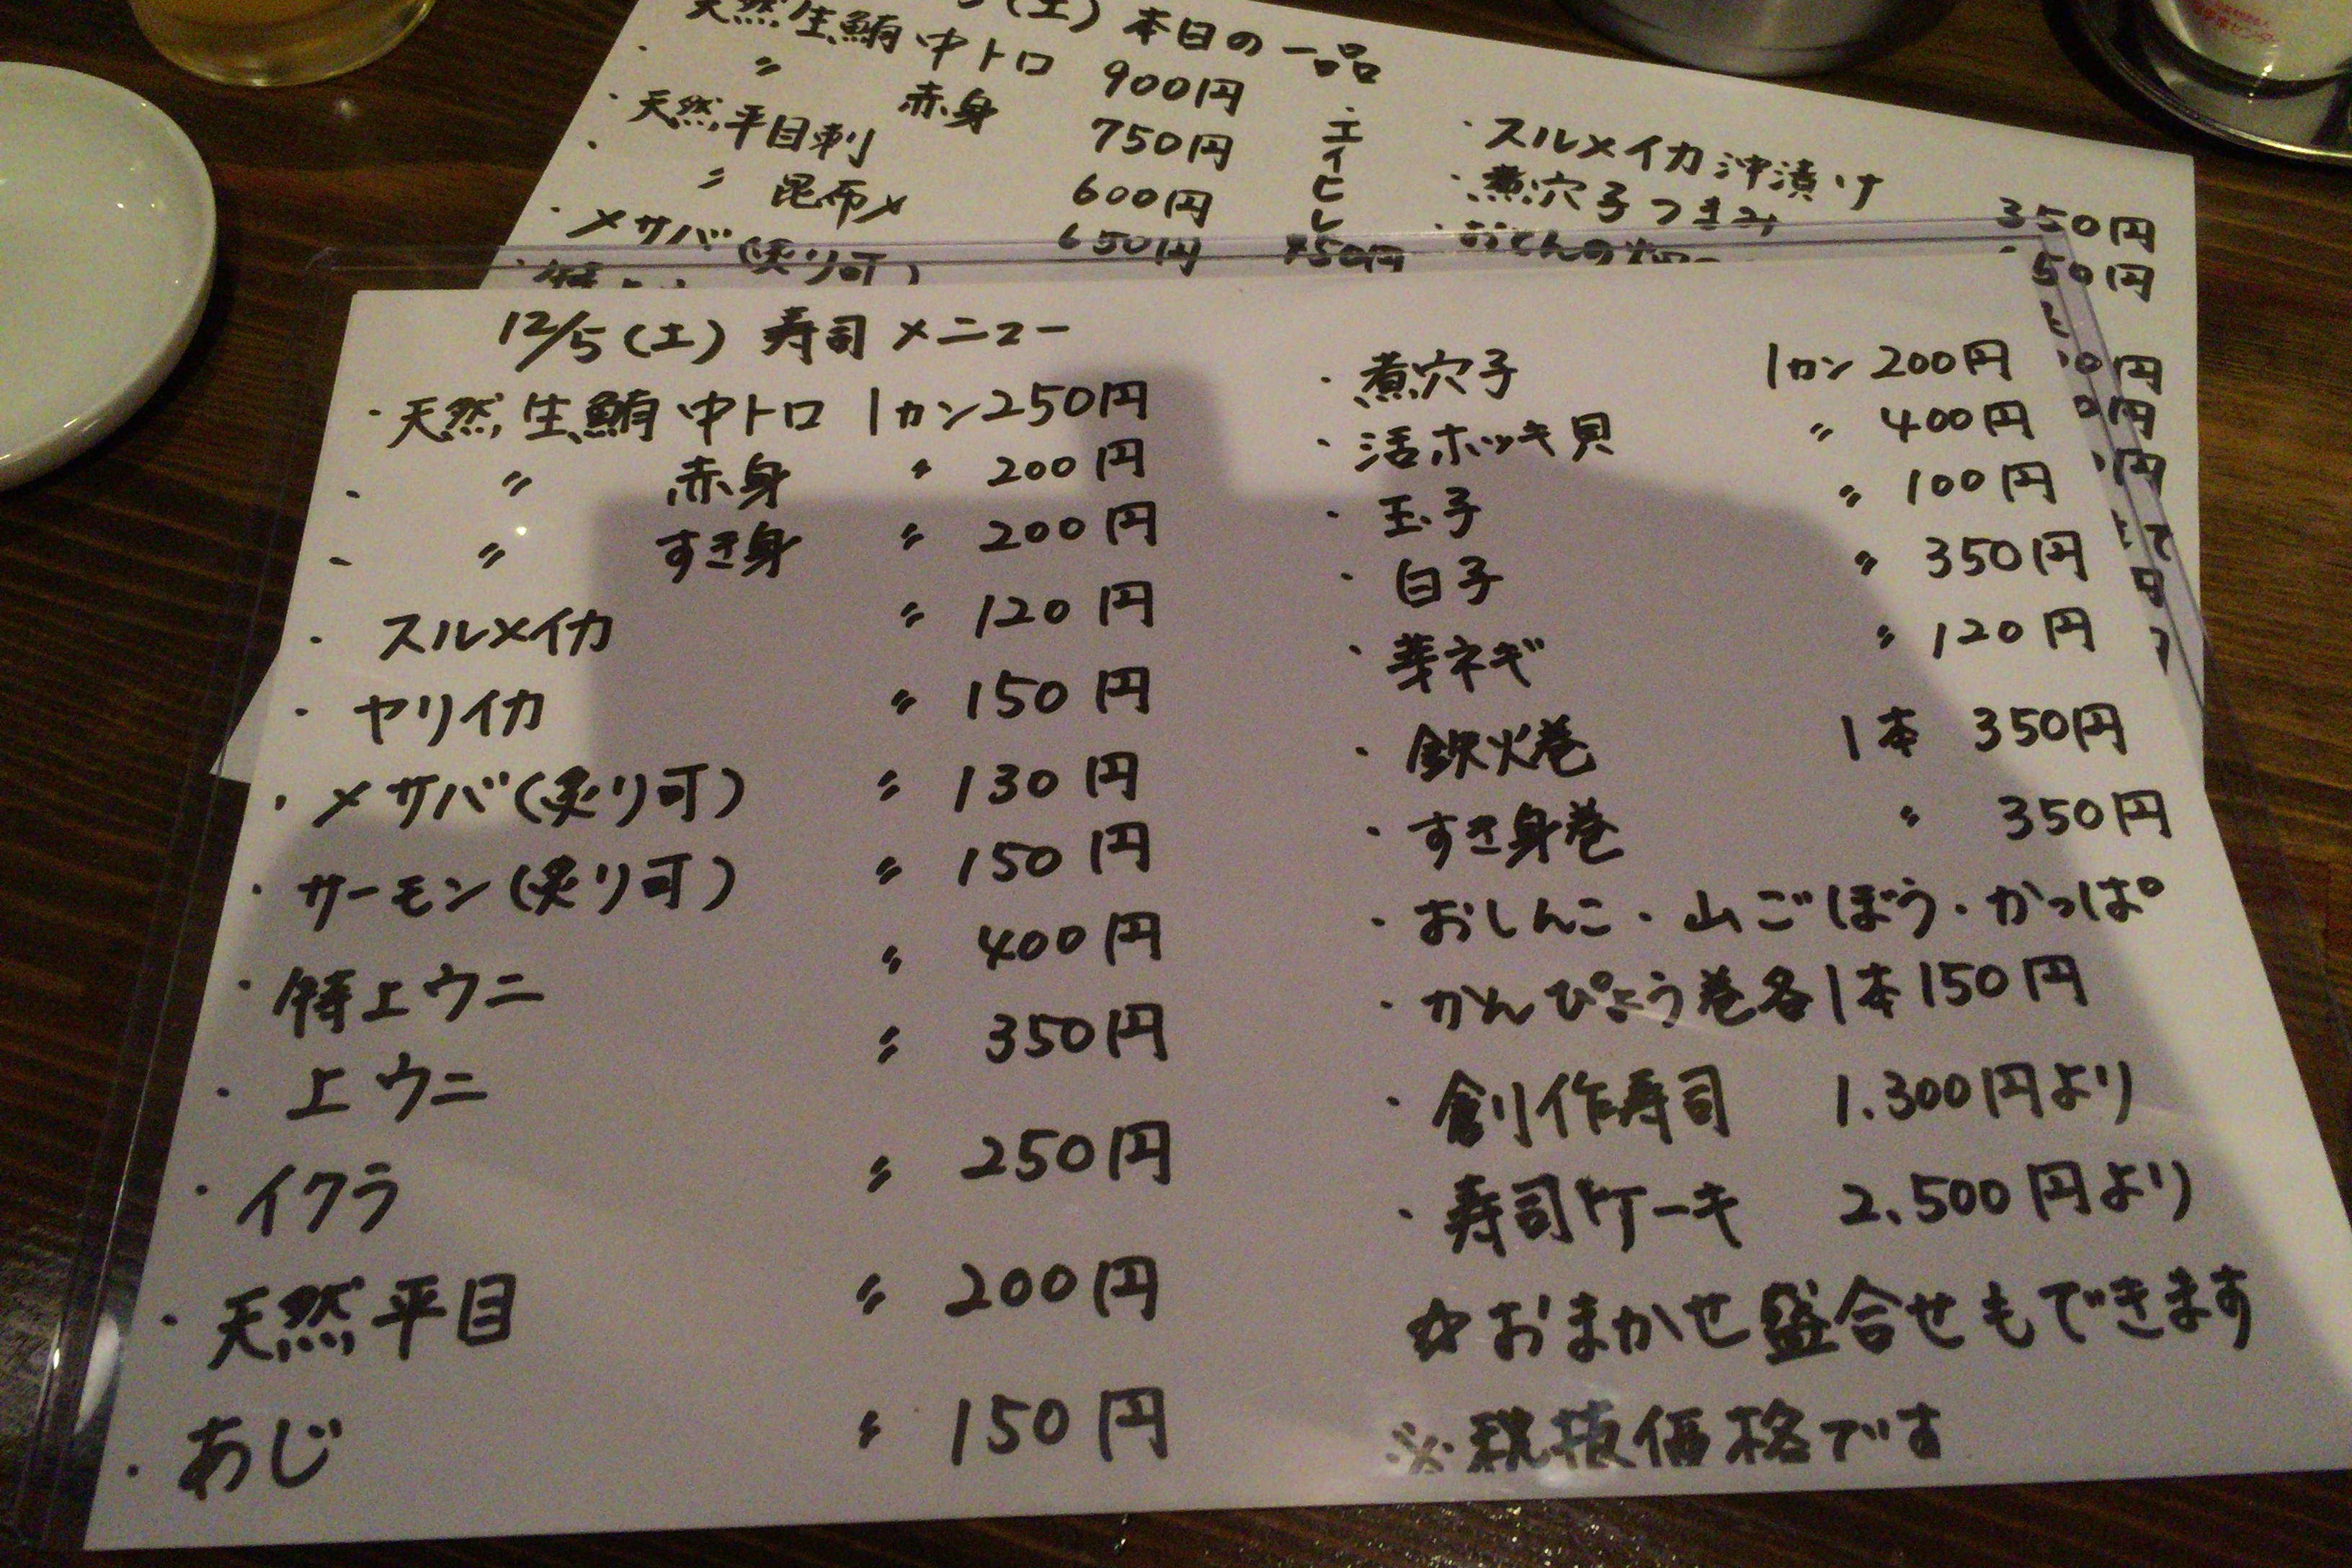 (土) 本日の一品
天然生鮪中トロ 900円
〃 赤身 750円
・天然平目刺 600円
・ 〃 昆布〆 650円
・〆サバ(炙り可)
・エイヒレ
・スルメイカ沖漬け 350円
・煮穴子つまみ 50円
12/5(土) 寿司メニュー
・天然生鮪中トロ 1カン250円
・ 〃 赤身 〃 200円
・ 〃 すき身 〃 200円
・スルメイカ 〃 120円
・ヤリイカ 〃 150円
・〆サバ(炙り可) 〃 130円
・サーモン(炙り可) 〃 150円
・特上ウニ 〃 400円
・上ウニ 〃 350円
・イクラ 〃 250円
・天然平目 〃 200円
・あじ 〃 150円
・煮穴子 1カン 200円
・活ホッキ貝 〃 400円
・玉子 〃 100円
・白子 〃 350円
・芽ネギ 〃 120円
・鉄火巻 1本 350円
・すき身巻 〃 350円
・おしんこ・山ごぼう・かっぱ
・かんぴょう巻各1本150円
・創作寿司 1.300円より
・寿司ケーキ 2.500円より
☆おまかせ盛合せもできます
※税抜価格です